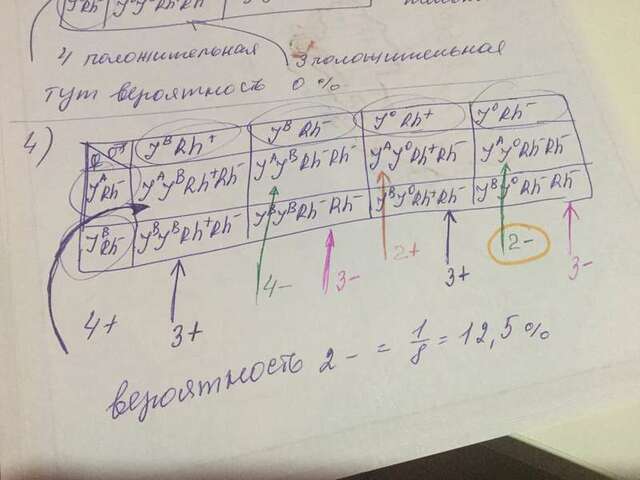 4 положительная 3 положительная
тут вероятность 0 %
4)
♀ ♂ J^B Rh^+ J^B Rh^- J^O Rh^+ J^O Rh^-
J^A Rh^- J^A J^B Rh^+ Rh^- J^A J^B Rh^- Rh^- J^A J^O Rh^+ Rh^- J^A J^O Rh^- Rh^-
J^B Rh^- J^B J^B Rh^+ Rh^- J^B J^B Rh^- Rh^- J^B J^O Rh^+ Rh^- J^B J^O Rh^- Rh^-
4+ 3+ 4- 3- 2+ 3+ 2- 3-
вероятность 2 - = 1/8 = 12,5 %